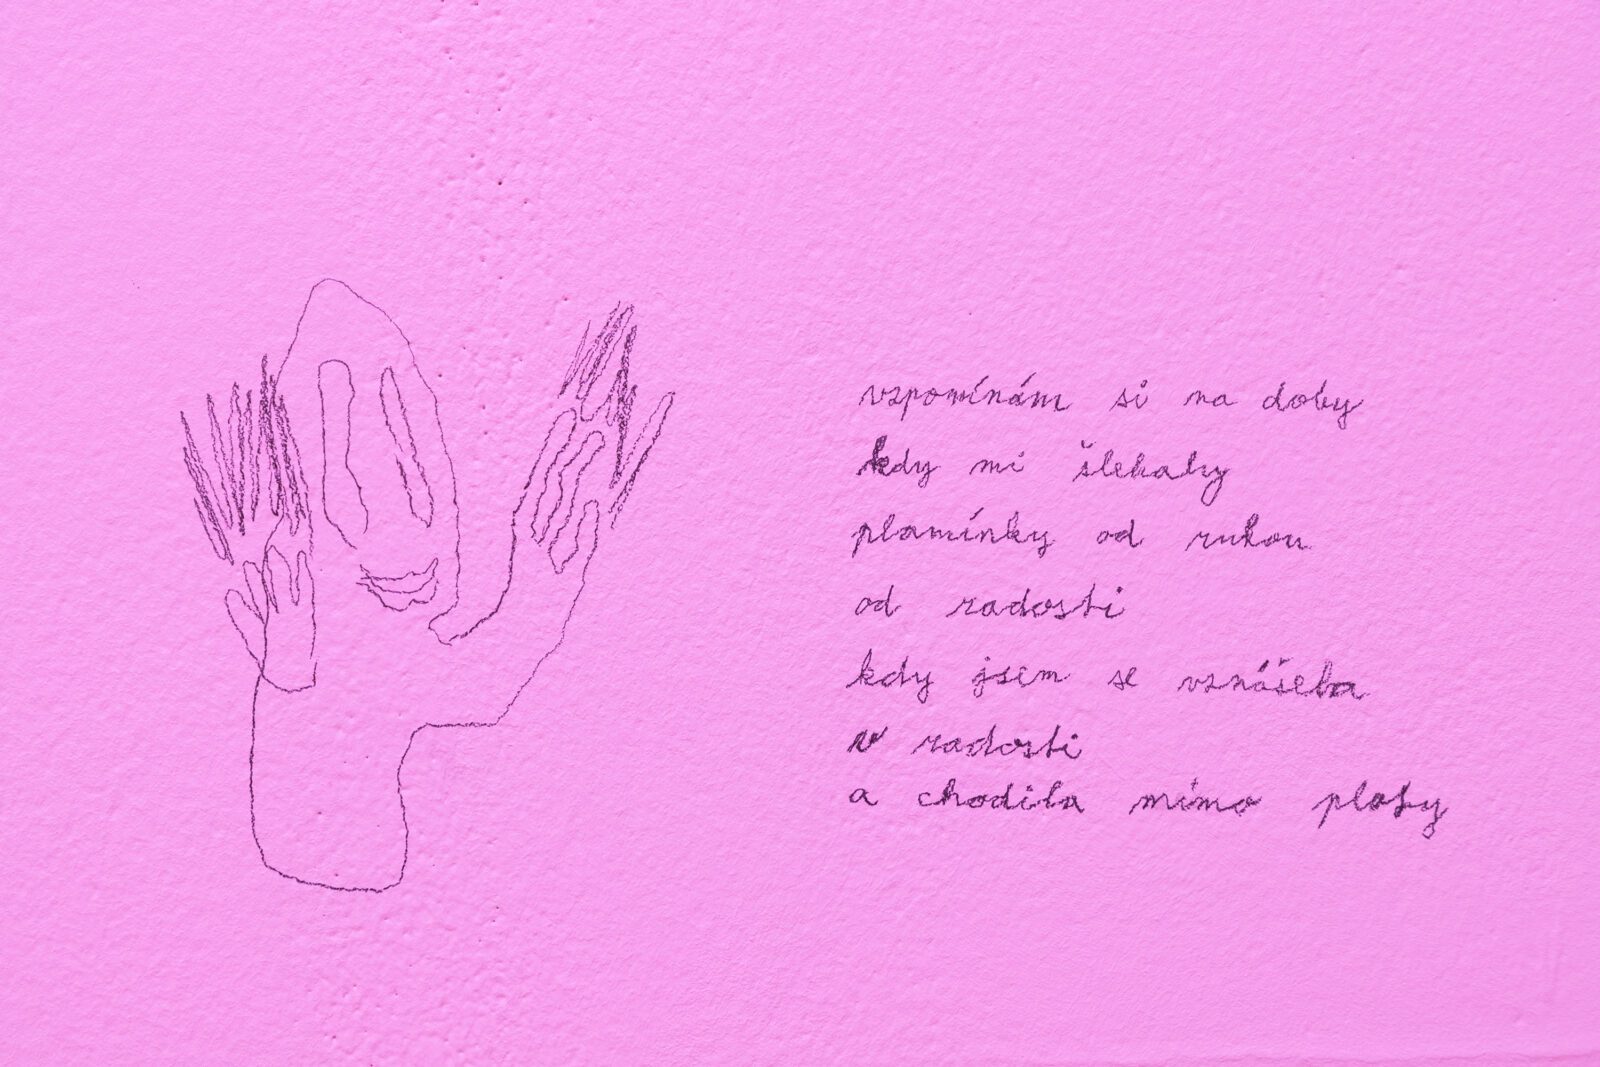 vzpomínám si na doby
kdy mi šlehaly
plamínky od rukou
od radosti
kdy jsem se vznášela
v radosti
a chodila mimo ploty